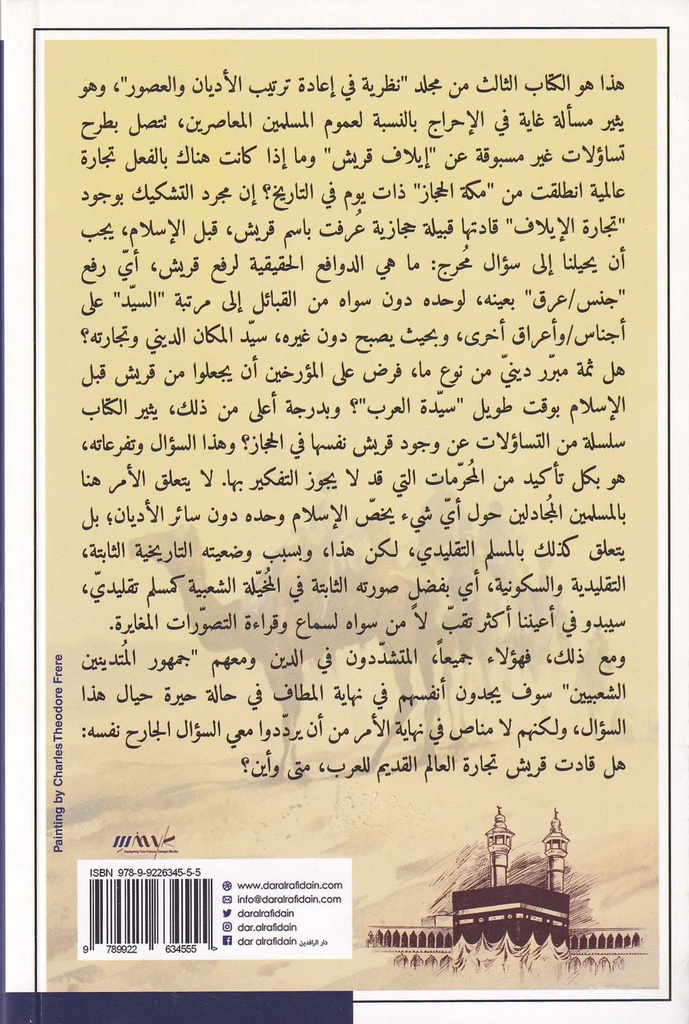 هذا هو الكتاب الثالث من مجلد "نظرية في إعادة ترتيب الأديان والعصور"، وهو
يثير مسألة غاية في الإحراج بالنسبة لعموم المسلمين المعاصرين، تتصل بطرح
تساؤلات غير مسبوقة عن "إيلاف قريش" وما إذا كانت هناك بالفعل تجارة
عالمية انطلقت من "مكة الحجاز" ذات يوم في التاريخ؟ إن مجرد التشكيك بوجود
"تجارة الإيلاف" قادتها قبيلة حجازية عُرفت باسم قريش، قبل الإسلام، يجب
أن يحيلنا إلى سؤال مُحرج: ما هي الدوافع الحقيقية لرفع قريش، أيّ رفع
"جنس/عرق" بعينه، لوحده دون سواه من القبائل إلى مرتبة "السيّد" على
أجناس/وأعراق أخرى، وبحيث يصبح دون غيره، سيّد المكان الديني وتجارته؟
هل ثمة مبرّر دينيّ من نوع ما، فرض على المؤرخين أن يجعلوا من قريش قبل
الإسلام بوقت طويل "سيّدة العرب"؟ وبدرجة أعلى من ذلك، يثير الكتاب
سلسلة من التساؤلات عن وجود قريش نفسها في الحجاز؟ وهذا السؤال وتفرعاته،
هو بكل تأكيد من المُحرّمات التي قد لا يجوز التفكير بها. لا يتعلق الأمر هنا
بالمسلمين المُجادلين حول أيّ شيء يخصّ الإسلام وحده دون سائر الأديان؛ بل
يتعلق كذلك بالمسلم التقليدي، لكن هذا، وبسبب وضعيته التاريخية الثابتة،
التقليدية والسكونية، أي بفضل صورته الثابتة في المُخيّلة الشعبية كمسلم تقليديّ،
سيبدو في أعيننا أكثر تقبّ لاً من سواه لسماع وقراءة التصوّرات المغايرة.
ومع ذلك، فهؤلاء جميعاً، المتشدّدون في الدين ومعهم "جمهور المُتدينين
الشعبيين" سوف يجدون أنفسهم في نهاية المطاف في حالة حيرة حيال هذا
السؤال، ولكنهم لا مناص في نهاية الأمر من أن يردّدوا معي السؤال الجارح نفسه:
هل قادت قريش تجارة العالم القديم للعرب، متى وأين؟
Painting by Charles Theodore Frere
ISBN 978-9-9226345-5-5
9 789922 634555
www.daralrafidain.com
info@daralrafidain.com
daralrafidain
dar.alrafidain
dar alrafidain دار الرافدين